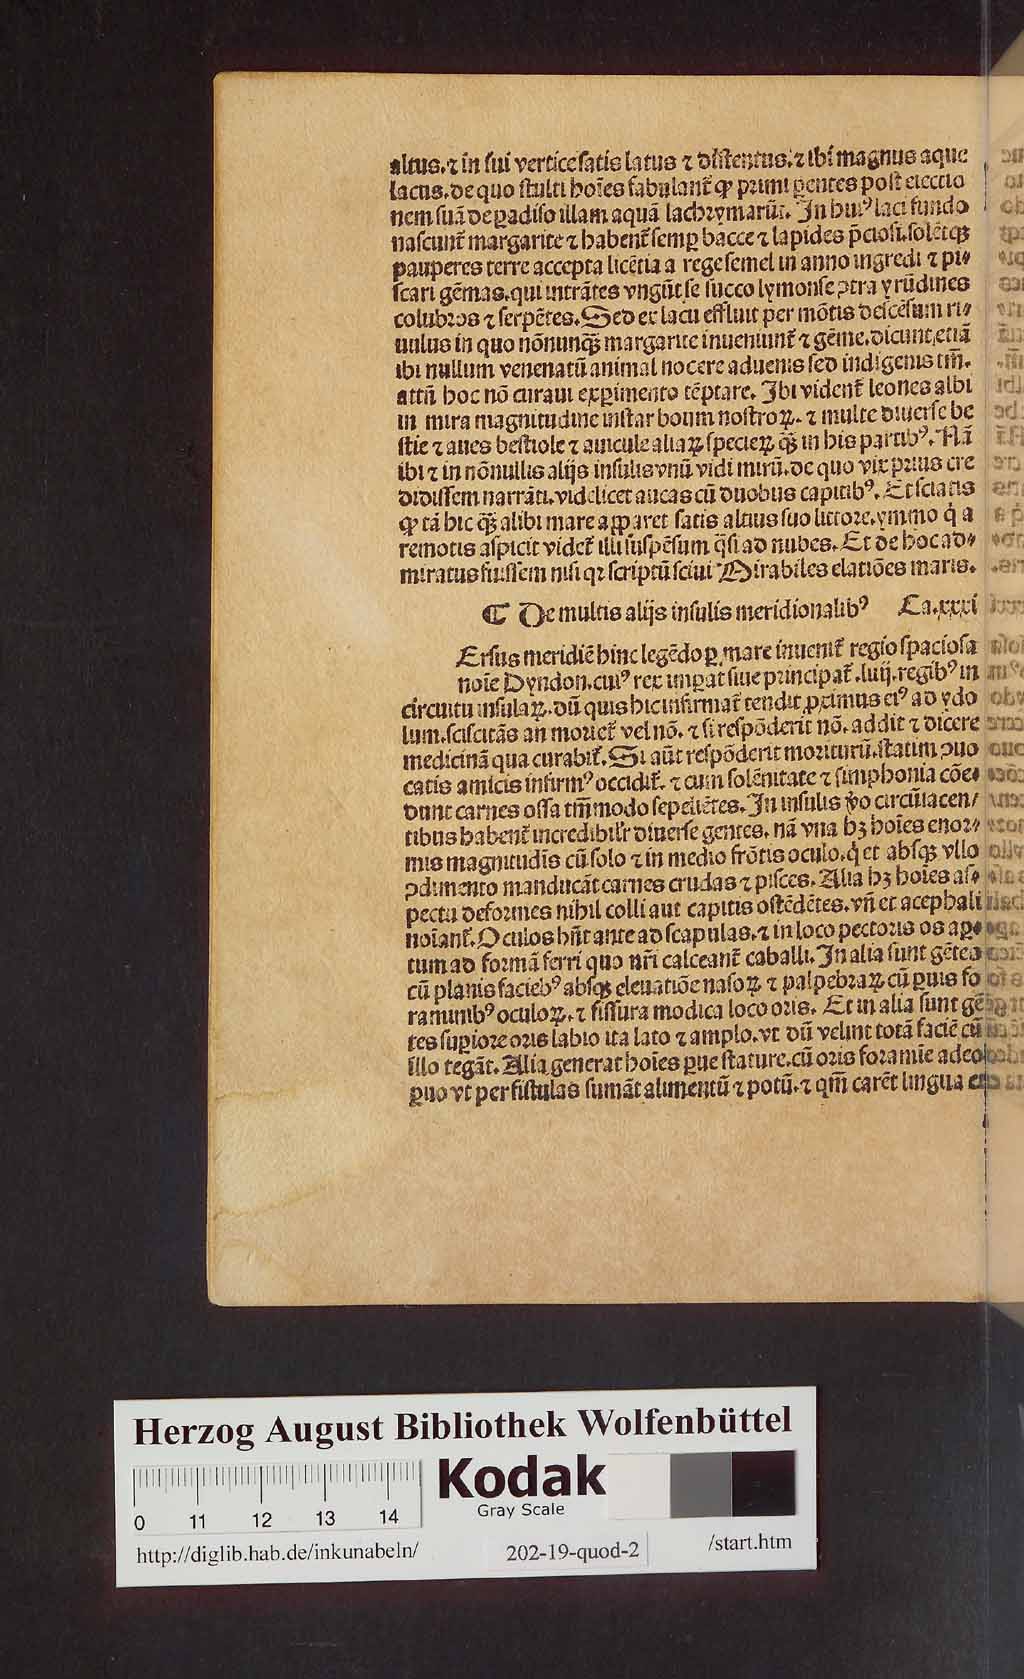 altus.⁊ in sui vertice satis latus ⁊ distentus.⁊ ibi magnus aque
lacus.de quo stulti hoīes fabulant̄ ꝙ primi parentes post eiectio
nem suā de ꝑadiso illam aquā lachrymarūt. In huiꝰ laci fundo
nascunt̄ margarite ⁊ habent̄ semꝑ bacce ⁊ lapides p̄ciosi.solētqꝫ
pauperes terre accepta licētia a rege semel in anno ingredi ⁊ pi⸗
scari gēmas.qui intrātes vngūt se succo lymonse ↄtra yrūdines
colubros ⁊ serpētes. Sed ex lacu effluit per mōtis descēsum ri⸗
uulus in quo nōnunqꝫ margarite inueniunt̄ ⁊ gēme.dicunt etiā
ibi nullum venenatū animal nocere aduenis sed indigenis tm̄.
attn̄ hoc nō curaui exꝑimento tēptare. Ibi vident̄ leones albi
in mira magnitudine instar boum nostroꝝ. ⁊ multe diuerse be
stie ⁊ aues bestiole ⁊ auicule aliaꝝ specieꝝ qꝫ in his partibꝰ. Nā
ibi ⁊ in nōnullis alijs insulis vnū vidi mirū.de quo vix prius cre
didissem narrāti.videlicet aucas cū duobus capitibꝰ. Et sciatis
ꝙ tā hic qꝫ alibi mare apparet satis altius suo littore.ymmo q̇ a
remotis aspicit videt̄ illi suspēsum q̄si ad nubes. Et de hoc ad⸗
miratus fuissem nisi qꝛ scriptū sciui Mirabiles elatiōes maris.
¶ De multis alijs insulis meridionalibꝰ Ca.xxxi
Ersus meridiē hinc legēdo ꝑ mare inuenit̄ regio spaciosa
noīe Dyndon.cuiꝰ rex imꝑat siue principat̄.liiij.regibꝰ in
circuitu insulaꝝ.dū quis hic infirmat̄ tendit proximus eiꝰ ad ydo
lum.sciscitās an moriet̄ vel nō. ⁊ si respōderit nō. addit ⁊ dicere
medicinā qua curabit̄. Si aūt respōderit moriturū.statim ↄuo
catis amicis infirmꝰ occidit̄. ⁊ cum solēnitate ⁊ simphonia cōe⸗
dunt carnes ossa tm̄modo sepeliētes. In insulis v̊o circūiacen/
tibus habent̄ incredibilr̄ diuerse gentes. nā vna hꝫ hoīes enor⸗
mis magnitudīs cū solo ⁊ in medio frōtis oculo.q̇ et absqꝫ vllo
ↄdimento manducāt carnes crudas ⁊ pisces. Alia hꝫ hoīes as⸗
pectu deformes nihil colli aut capitis ostēdētes.vn̄ et acephali
noīant̄. Oculos hn̄t ante ad scapulas.⁊ in loco pectoris os aꝑ⸗
tum ad formā ferri quo nr̄i calceant̄ caballi. In alia sunt gētes
cū planis faciebꝰ absqꝫ eleuatiōe nasoꝝ ⁊ palpebraꝝ cū ꝑuis fo
raminibꝰ oculoꝝ.⁊ fissura modica loco oris. Et in alia sunt gē
tes suꝑiore oris labio ita lato ⁊ amplo.vt dū velint totā faciē cū
illo tegāt. Alia generat hoīes ꝑue stature.cū oris foramīe adeo
ꝑuo vt per fistulas sumāt alimentū ⁊ potū.⁊ qm̄ carēt lingua et
Herzog August Bibliothek Wolfenbüttel
Kodak
Gray Scale
0 11 12 13 14
http://diglib.hab.de/inkunabeln/ 202-19-quod-2 /start.htm